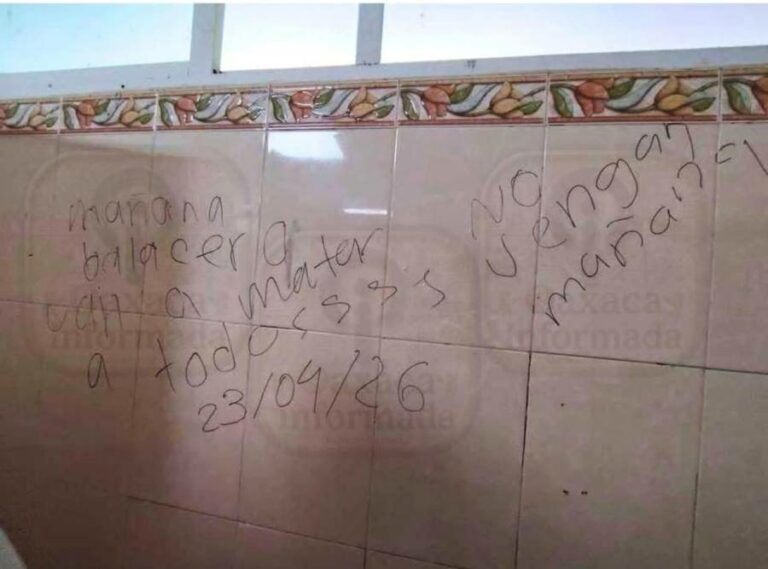 mañana
balacera
van a mater
a todosssss
23/04/26
NO
vengan
mañana
Oaxaca
Informada
Oaxaca
Informada
Oaxaca
Informada